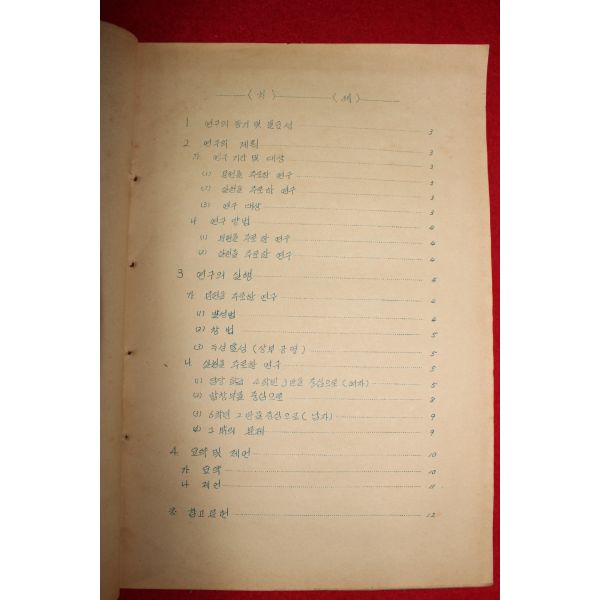 < 차 > < 례 >
1. 연구의 동기 및 필요성 3
2. 연구의 계획 3
가. 연구 기간 및 대상 3
(1) 문헌을 주로한 연구 3
(2) 실천을 주로한 연구 3
(3) 연구 대상 3
나. 연구 방법 4
(1) 문헌을 주로한 연구 4
(2) 실천을 주로한 연구 4
3 연구의 실행 4
가. 문헌을 주로한 연구 4
(1) 발성법 4
(2) 창 법 5
(3) 두성발성 (상부 공명) 5
나. 실천을 주로한 연구 5
(1) 담당 학급 4학년 3반을 중심으로 (여자) 5
(2) 합창부를 중심으로 8
(3) 6학년 2반을 중심으로 (남자) 9
(4) 그 밖의 문제 9
4. 요약 및 제언 10
가. 요약 10
나. 제언 11
참고문헌 12